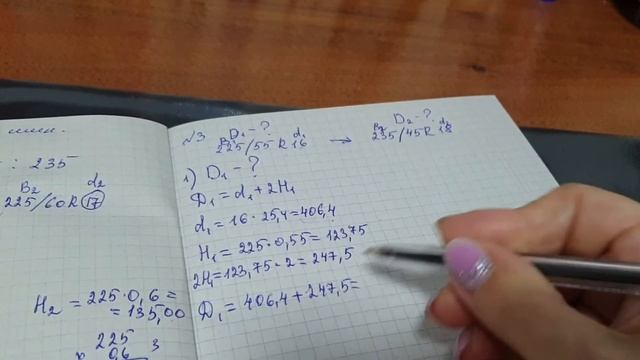 шин.
: 235
B2 d2
225/60R 17
H2 = 225·0,6 =
= 135,00
225
x 0,6
3
№3 D1 - ? D2 - ?
B1 d1 B2 d2
225/55 R 16 → 235/45R 18
1) D1 - ?
D1 = d1 + 2H1
d1 = 16 · 25,4 = 406,4
H1 = 225 · 0,55 = 123,75
2H1 = 123,75 · 2 = 247,5
D1 = 406,4 + 247,5 =